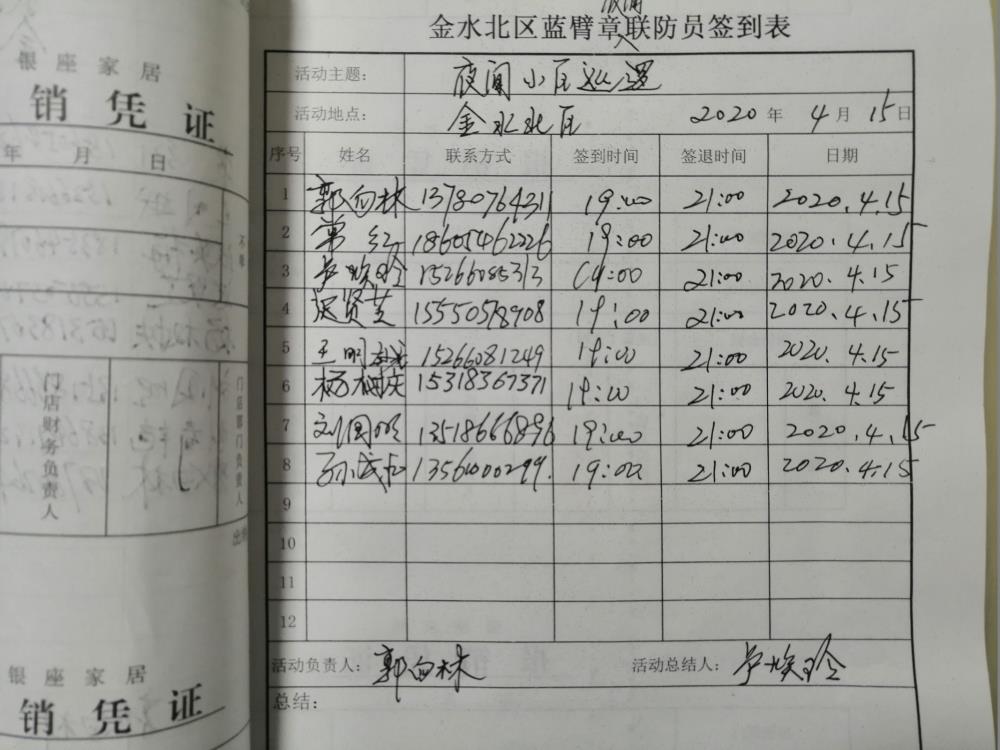 银座家居
销凭证
年 月 日
不单
门店财务负责人
门店部门负责人
银座家居
销凭证
金水北区蓝臂章联防员签到表
活动主题: 夜间小区巡逻
活动地点: 金水北区 2020年4月15日
序号 姓名 联系方式 签到时间 签退时间 日期
1 郭向林 13780764311 19:00 21:00 2020.4.15
2 常红 18605462226 19:00 21:00 2020.4.15
3 15266085313 19:00 21:00 2020.4.15
4 贤芝 15550518908 19:00 21:00 2020.4.15
5 王明 15266081249 19:00 21:00 2020.4.15
6 杨树庆 15318367371 19:00 21:00 2020.4.15
7 刘国明 13518666896 19:00 21:00 2020.4.15
8 孙成 13561000299. 19:00 21:00 2020.4.15
9
10
11
12
活动负责人: 郭向林 活动总结人:
总结: